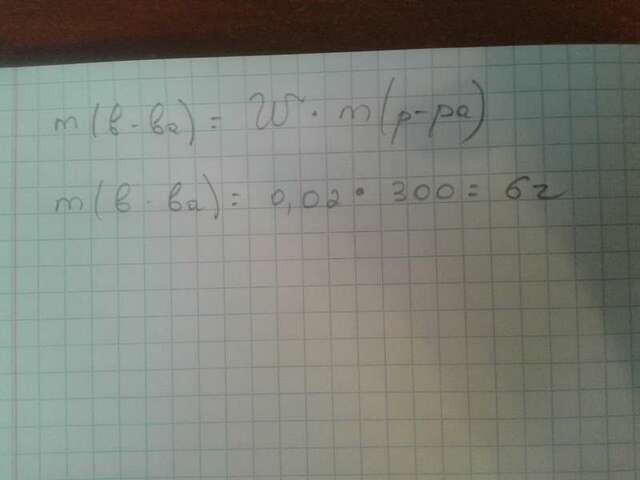 m(в-ва) = W · m(р-ра)
m(в-ва) = 0,02 · 300 = 6г